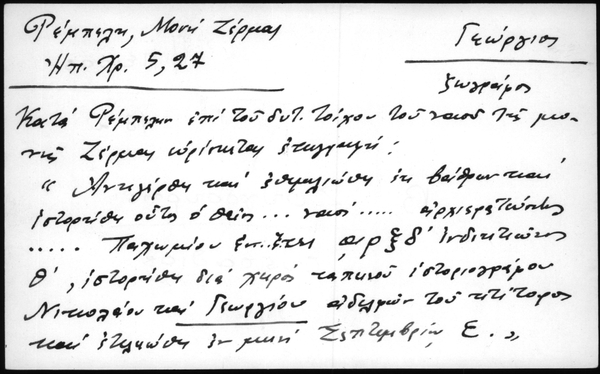 Ρέμπελη, Μονή Ζέρμας
Ἠπ. Χρ. 5, 27
Γεώργιος
ζωγράφος
Κατά Ρέμπελην ἐπί τοῦ δυτ. τοίχου τοῦ ναοῦ τῆς μο-
νῆς Ζέρμας εὑρίσκεται ἐπιγραφή:
" Ἀνηγέρθη καί ἐκ βάθρων καί
ἱστορήθη οὗτος ὁ θεῖος ... ναός ..... ἀρχιερατεύοντος
..... Παχωμίου ἐν ..ἔτει ͵αρξδ' Ἰνδικτιῶνος
Θ', ἱστορήθη διά χειρός ταπεινοῦ ἱστοριογράφου
Νικολάου καί Γεωργίου ἀδελφῶν τοῦ κτίτορος
καί ἐτελειώθη ἐν μηνί Σεπτεμβρίῳ Ε. "